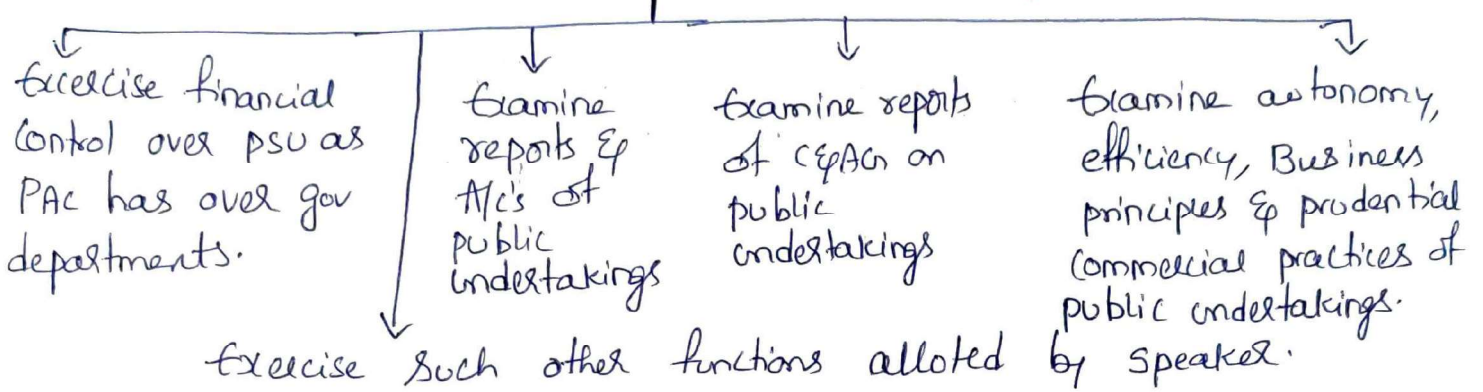 Excercise financial
Control over PSU as
PAC has over gov
departments.
Examine
reports &
A/c's of
public
undertakings
Examine reports
of C&AG on
public
undertakings
Examine autonomy,
efficiency, Business
principles & prudential
Commercial practices of
public undertakings.
Exercise Such other functions alloted by Speaker.